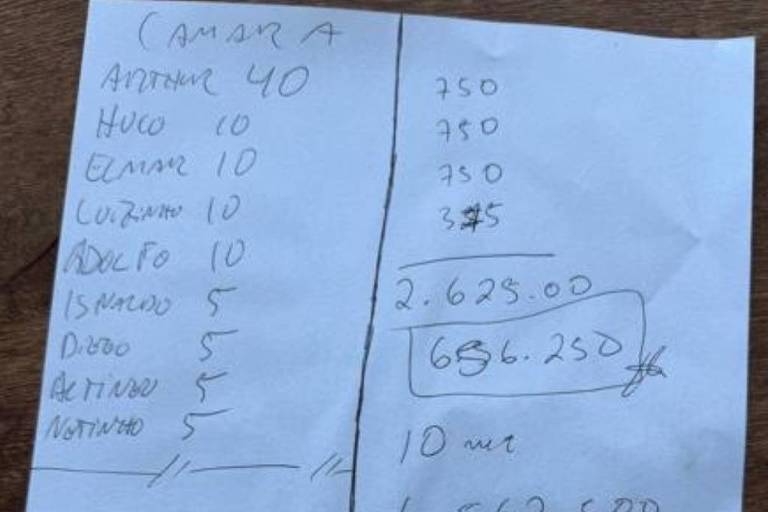 CAMARA
ARTHUR 40
HUGO 10
ELMAR 10
LUIZINHO 10
ADOLFO 10
ISNALDO 5
DIEGO 5
ALTINEU 5
NETINHO 5
750
750
750
375
2.625.00
656.250
10 mi